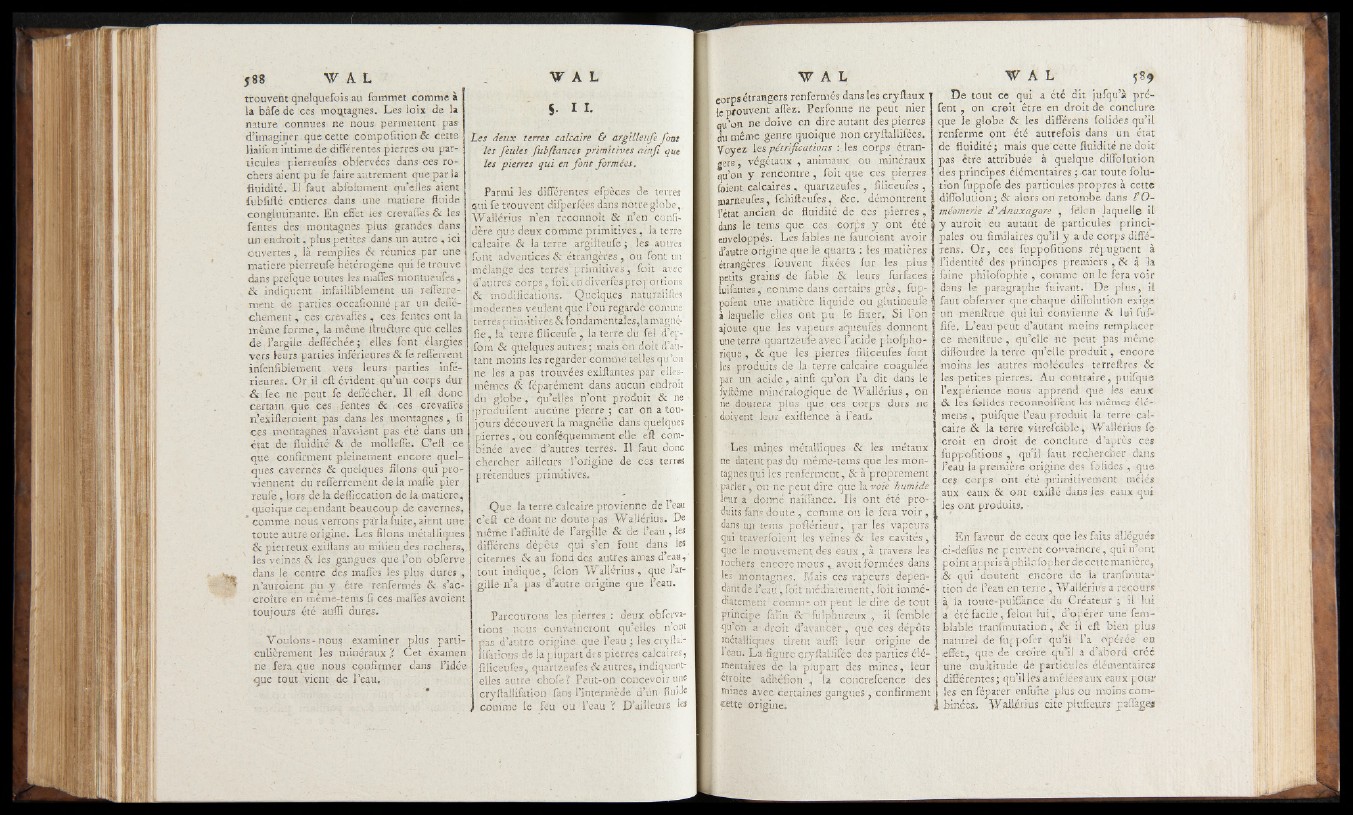 588 W A L
trouvent quelquefois au sommet comme à
la bâse de ces montagnes. Les loix de la
nature connues ne nous permettent pas
d'imaginer que cette composition & cette
liaison intime de différentes pierres ou par-
ticules pierreuses observées dans ces ro-
chers aient pu se faire autrement que par la
fluidité. Il faut absolument qu'elles aient
subsisté entieres dans une matiere fluide
conglutinante. En effet les crevasses & les
fentes des montagnes plus grandes dans
un endroit, plus petites dans un autre, ici
ouvertes, là remplies & réunies par une
matiere pierreuse hétérogène qui se trouve
dans presque toutes les masses montueuses,
& indiquent infailliblement un resserre-
ment de parties occasionné par un dessé-
chement, ces crevasses, ces fentes ont la
même forme, la même structure que celles
de l'argile desséchée; elles sont élargies
vers leurs parties inférieures & se resserrent
insensiblement vers leurs parties infé-
rieures. Or il est évident qu'un corps dur
& sec ne peut se dessécher. Il est donc
certain que ces fentes & ces crevasses
n'existeroient pas dans les montagnes, si
ces montagnes n'avoient pas été dans un
état de fluidité & de mollesse. C'est ce
que confirment pleinement encore quel-
ques cavernes & quelques filons qui pro-
viennent du resserrement de la masse pier
reuse, lors de la dessiccation de la matiere,
quoique cependant beaucoup de cavernes,
comme nous verrons par la suite, aient une
toute autre origine. Les filons métalliques
& pierreux existans au milieu des rochers,
les veines & les gangues que l'on observe
dans le centre des masses les plus dures,
n'auroient pu y être renfermés & s'ac-
croître en même-tems si ces masses avoient
toujours été aussi dures.
Voulons-nous examiner plus parti-
culièrement les minéraux? Cet éxamen
ne sera que nous confirmer dans l'idée
que tout vient de l'eau.
W A L
§. I I.
Les deux terres calcaire & argilleuse sont
les seules substances primitives ainsi que
les pierres qui en sont formées.
Parmi les différentes espèces de terres
qui se trouvent dispersées dans notre globe,
Wallérius n'en reconnoît & n'en consi-
dère que deux comme primitives, la terre
calcaire & la terre argilleuse; les autres
sont adventices & étrangères, ou sont un
mélange des terres primitives, soit avec
d'autres corps, soit en diverses proportions
& modifications. Quelques naturalistes
modernes veulent que l'on regarde comme
terres primitives & fondamentales, la magné-
sie, la terre siliceuse, la terre du sel d'ep-
som & quelques autres; mais on doit d'au-
tant moins les regarder comme telles qu'on
ne les a pas trouvées existantes par elles-
mêmes & séparément dans aucun endroit
du globe, qu'elles n'ont produit & ne
produisent aucune pierre; car on a tou-
jours découvert la magnésie dans quelques
pierres, ou conséquemment elle est com-
binée avec d'autres terres. Il faut donc
chercher ailleurs l'origine de ces terres
prétendues primitives.
Que la terre calcaire provienne de l'eau
c'est ce dont ne doute pas Wallérius. De
même l'affinité de l'argille & de l'eau, les
différens dépôts qui s'en font dans les
citernes & au fond des autres amas d'eau,
tout indique, selon Wallérius, que l'ar-
gille n'a pas d'autre origine que l'eau.
Parcourons les pierres: deux observa-
tions nous convaincront qu'elles n'ont
pas d'autre origine que l'eau; les crystal-
lisations de la plupart des pierres calcaires,
siliceuses, quartzeuses & autres, indiquent-
elles autre chose? Peut-on concevoir une
crystallisation sans l'intermède d'un fluide
comme le feu ou l'eau? D'ailleurs les
W A L
corps étrangers renfermés dans les crystaux
le prouvent assez. Personne ne peut nier
qu'on ne doive en dire autant des pierres
du même genre quoique non crystallisées.
Voyez les pétrifications: les corps étran-
gers, végétaux, animaux ou minéraux
qu'on y rencontre, soit que ces pierres
soient calcaires, quartzeuses, siliceuses,
marneuses, schisteuses, &c. démontrent
l'état ancien de fluidité de ces pierres,
dans le tems que ces corps y ont été
enveloppés. Les sables ne sauroient avoir
d'autre origine que le quarts; les matières
étrangères souvent fixées sur les plus
petits grains de sable & leurs surfaces
luisantes, comme dans certains grès, sup-
posent une matière liquide ou glutineuse
à laquelle elles ont pu se fixer. Si l'on
ajoute que les vapeurs aqueuses donnent
une terre quartzeuse avec l'acide phospho-
rique, & que les pierres siliceuses sont
les produits de la terre calcaire coagulée
par un acide, ainsi qu'on l'a dit dans le
systême minéralogique de Wallérius, on
ne doutera plus que ces corps durs ne
doivent leur existence à l'eau.
Les mines métalliques & les métaux
ne datent pas du même-tems que les mon-
tagnes qui les renferment, & à proprement
parler, on ne peut dire que la voie humide
leur a donné naissance. Ils ont été pro-
duits sans doute, comme on le fera voir,
dans un tems postérieur, par les vapeurs
qui traversoient les veines & les cavités,
que le mouvement des eaux, à travers les
rochers encore mous, avoit formées dans
les montagnes. Mais ces vapeurs dépen-
dant de l'eau, soit médiatement, soit immé-
diatement comme on peut le dire de tout
principe salin & sulphureux, il semble
qu'on a droit d'avancer, que ces dépôts
métalliques tirent aussi leur origine de
l'eau. La figure crystallisée des parties élé-
mentaires de la plupart des mines, leur
étroite adhésion, la concrescence des
mines avec certaines gangues, confirment
cette origine.
W A L 589
De tout ce qui a été dit jusqu'à pré-
sent, on croit être en droit de conclure
que le globe & les différens solides qu'il
renferme ont été autrefois dans un état
de fluidité; mais que cette fluidité ne doit
pas être attribuée à quelque dissolution
des principes élémentaires; car toute solu-
tion suppose des particules propres à cette
dissolution; & alors on retombe dans l'O-
méomerie d'Anaxagore, selon laquelle il
y auroit eu autant de particules princi-
pales ou similaires qu'il y a de corps diffé-
rens. Or, ces suppositions répugnent à
l'identité des principes premiers, & à la
saine philosophie, comme on le fera voir
dans le paragraphe suivant. De plus, il
faut observer que chaque dissolution exige
un menstrue qui lui convienne & lui suf-
fise. L'eau peut d'autant moins remplacer
ce menstrue, qu'elle ne peut pas même
dissoudre la terre qu'elle produit, encore
moins les autres molécules terrestres &
les petites pierres. Au contraire, puisque
l'expérience nous apprend que les eaux
& les solides reconnoissent les mêmes élé-
mens, puisque l'eau produit la terre cal-
caire & la terre vitrescible, Wallérius se
croit en droit de conclure d'après ces
suppositions, qu'il faut rechercher dans
l'eau la première origine des solides, que
ces corps ont été primitivement mêlés
aux eaux & ont existé dans les eaux qui
les ont produits.
En faveur de ceux que les faits allégués
ci-dessus ne peuvent convaincre, qui n'ont
point appris à philosopher de cette manière,
& qui doutent encore de la transmuta-
tion de l'eau en terre, Wallérius a recours
à la toute-puissance du Créateur; il lui
a été facile, selon lui, d'opérer une sem-
blable transmutation, & il est bien plus
naturel de supposer qu'il l'a opérée en
effet, que de croire qu'il a d'abord créé
une multitude de particules élémentaires
différentes; qu'il les a mêlées aux eaux pour
les en séparer ensuite plus ou moins com-
binées. Wallérius cite plusieurs passages